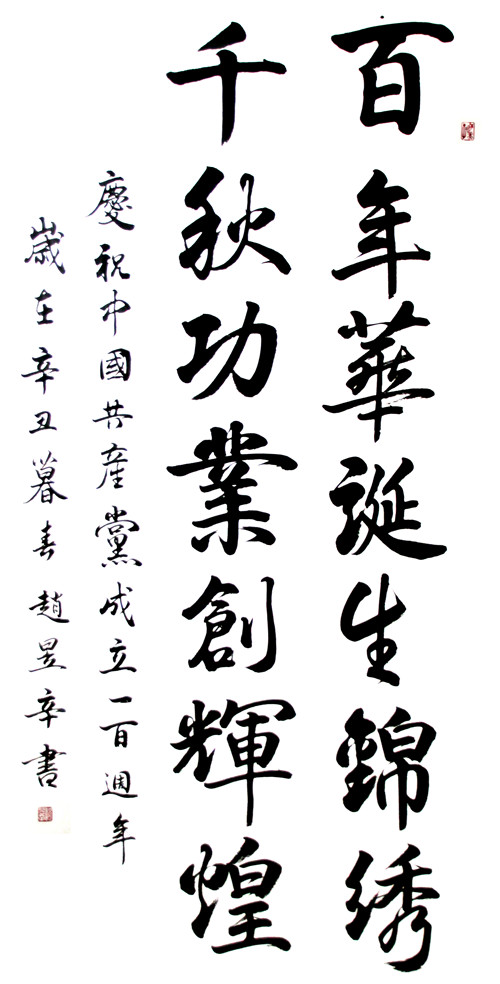 百年華誕生錦綉
千秋功業創輝煌
慶祝中國共產黨成立一百週年
歲在辛丑暮春趙昱辛書